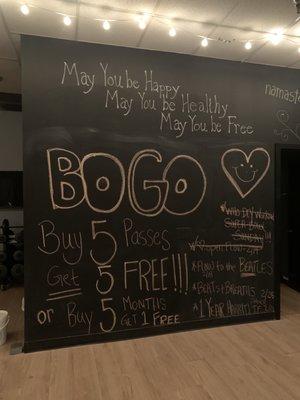 May You be Happy
May You be Healthy
May You be Free
namaste
BOGO
Buy 5 Passes
Get 5 FREE!!!
or Buy 5 MONTHS
GET 1 FREE
* Flow to the BEATLES
* BEATS & BREATHS
* 1 YEAR